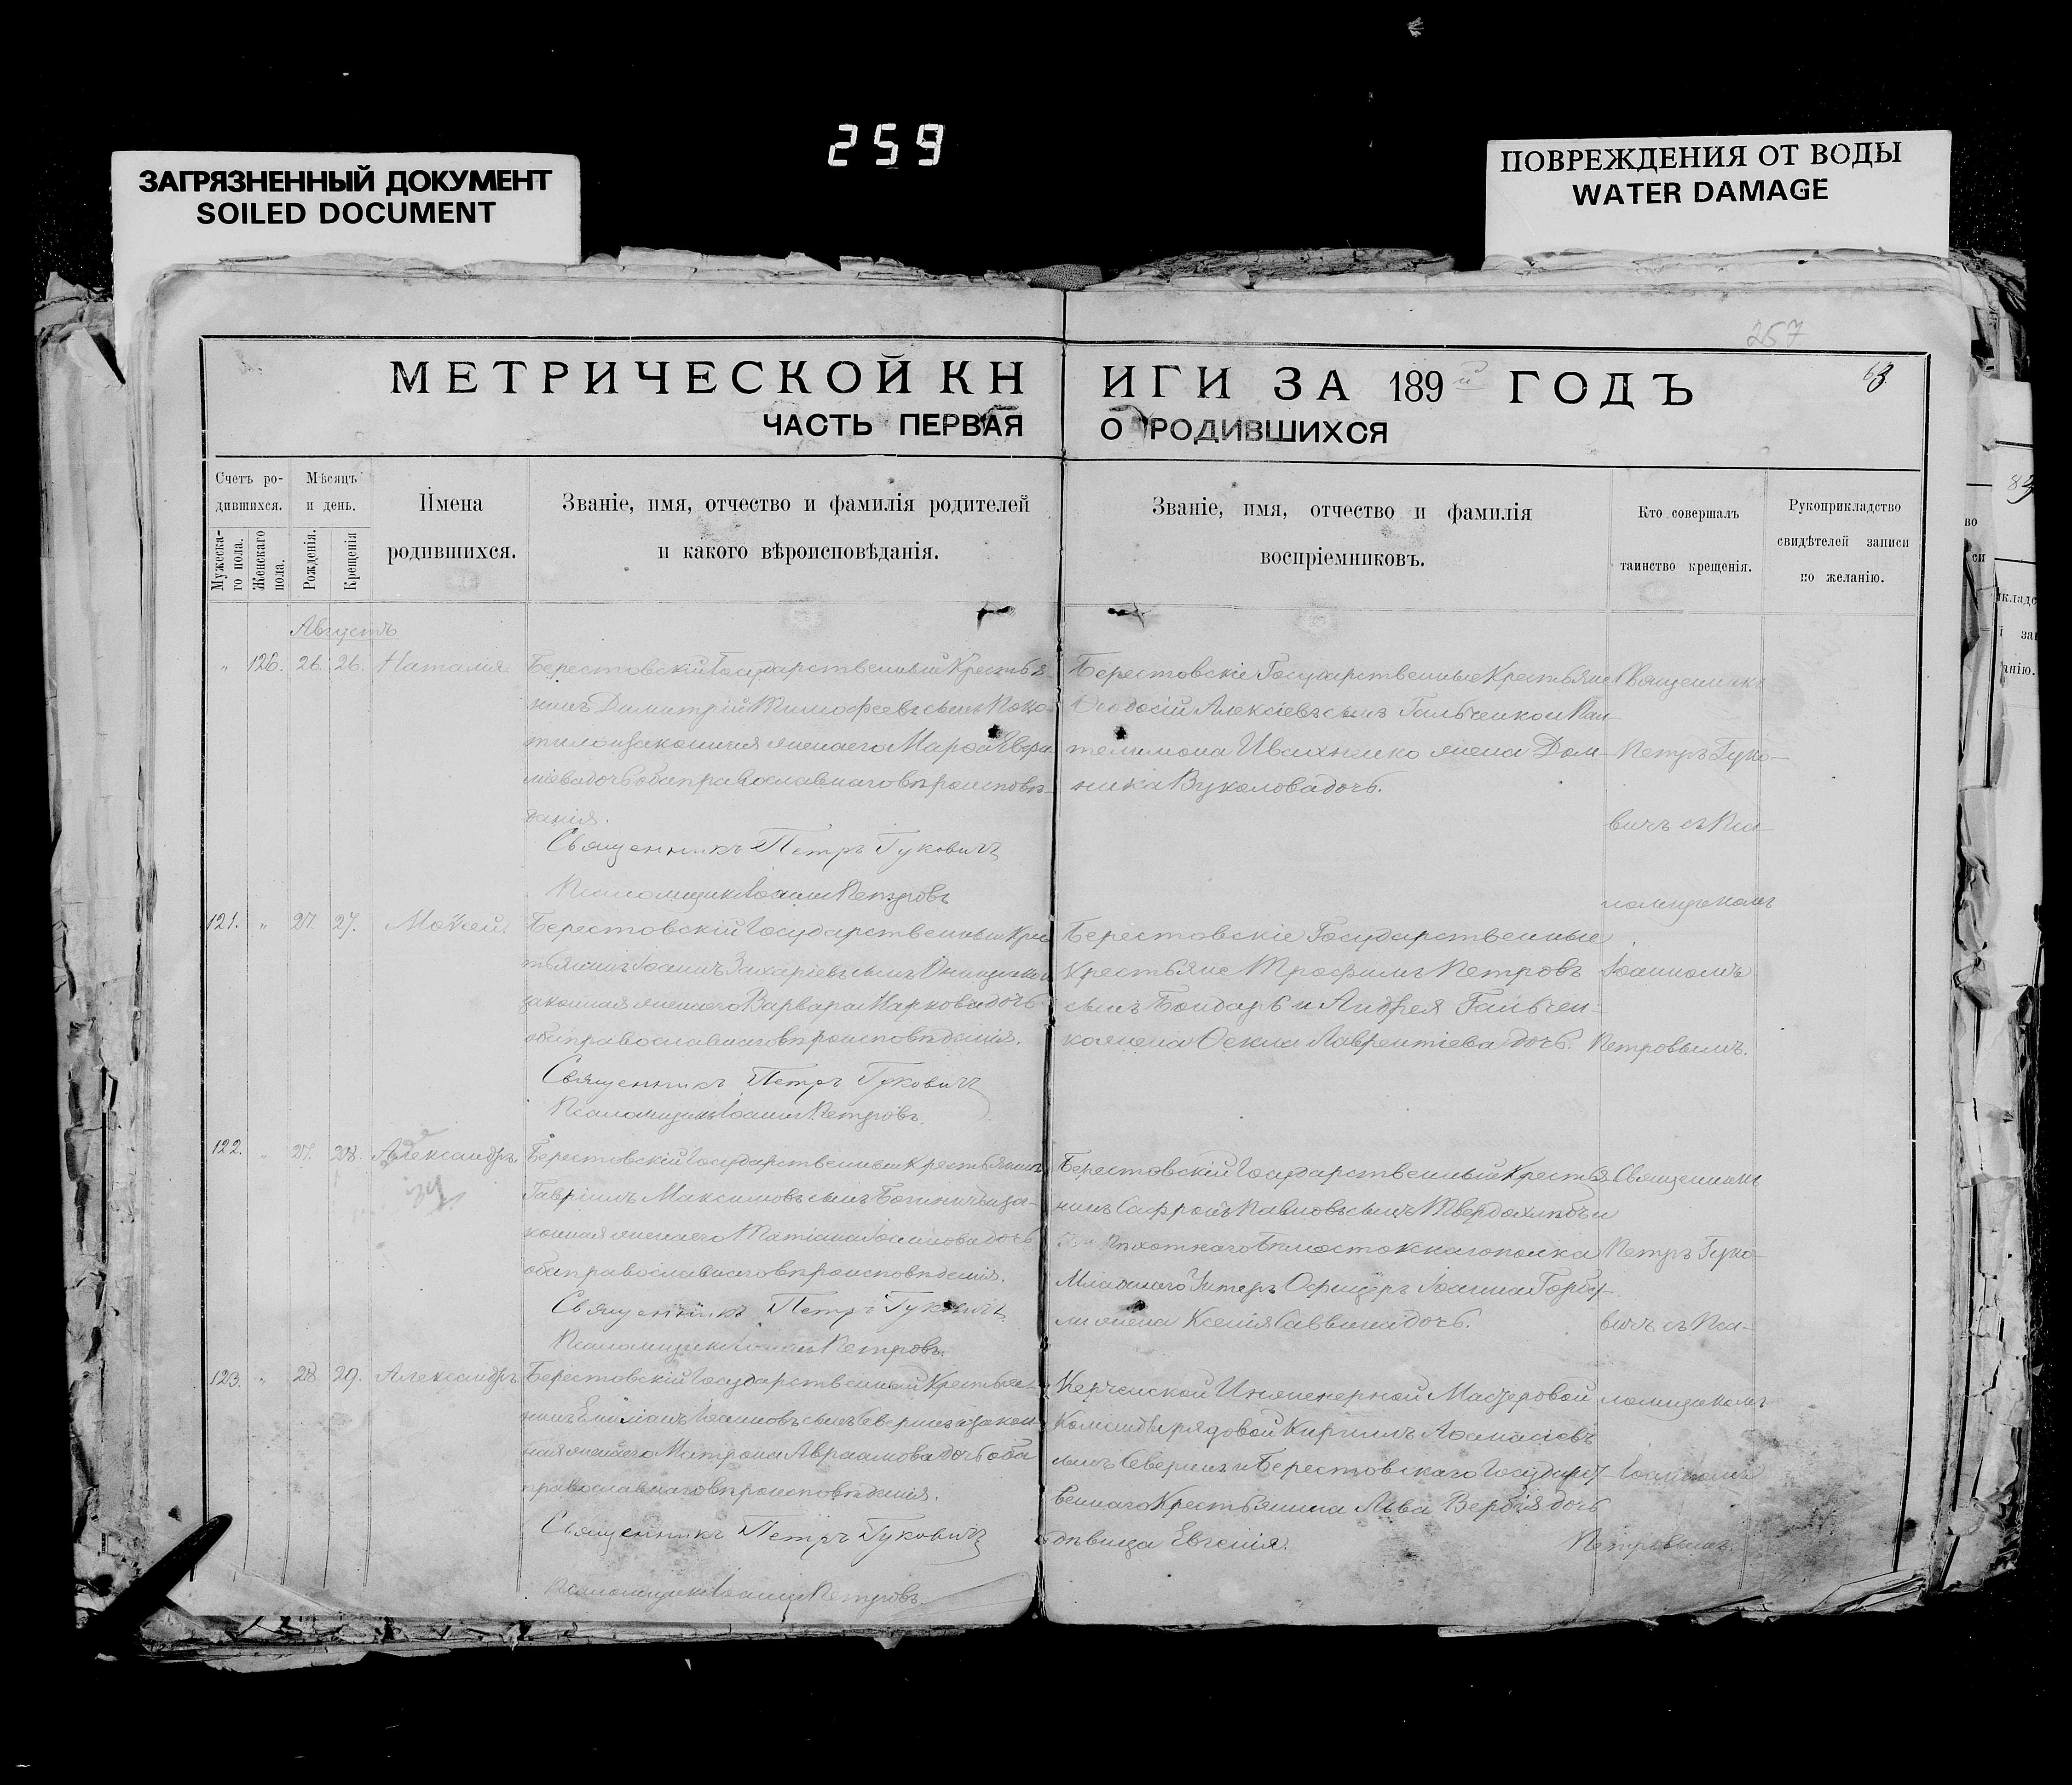 259
ЗАГРЯЗНЕННЫЙ ДОКУМЕНТ
SOILED DOCUMENT
ПОВРЕЖДЕНИЯ ОТ ВОДЫ
WATER DAMAGE
257
МЕТРИЧЕСКОЙ КН
ИГИ ЗА 189 ГОДЪ
ЧАСТЬ ПЕРВАЯ
О РОДИВШИХСЯ
Счетъ ро-
дившихся.
Мужеска-
го пола.
Женскаго
пола.
Мѣсяцъ
и день.
Рожденія.
Крещенія
Имена
родившихся.
Званіе, имя, отчество и фамилія родителей
и какого вѣроисповѣданія.
Званіе, имя, отчество и фамилія
воспріемниковъ.
Кто совершалъ
таинство крещенія.
Рукоприкладство
свидѣтелей записи
по желанію.
Августъ
" 126. 26. 26. Наталія
Берестовскій Государственный Крестья-
нинъ Димитрій Тимофеевъ сынъ
законная жена его Марѳа
дочь оба православнаго вѣроисповѣ-
данія.
Священникъ Петръ Гуковичъ
Псаломщикъ Іоаннъ Петровъ
Берестовскіе Государственные Крестьяне
Ѳеодосій Алексіевъ сынъ Гальченко и Пан-
телимона Ивахненко жена Дом-
ника Вуколова дочь.
Священникъ
Петръ Гуко-
вичъ съ Пса-
ломщикомъ
Іоанномъ
Петровымъ.
121. " 27. 27. Моѵсей
Берестовскій Государственный Крес
тьянинъ Іоаннъ Захаріевъ сынъ
законная жена его Варвара Маркова дочь
оба православнаго вѣроисповѣданія.
Священникъ Петръ Гуковичъ
Псаломщикъ Іоаннъ Петровъ.
Берестовскіе Государственные
Крестьяне Трофимъ Петровъ
сынъ Бондарь и Андрея Гальчен-
ко жена Ѳекла Лаврентіева дочь.
122. " 27. 28. Александръ
Берестовскій Государственный Крестьянинъ
Гавріилъ Максимовъ сынъ и за-
конная жена его Татіана Іоаннова дочь
оба православнаго вѣроисповѣданія.
Священникъ Петръ Гуковичъ
Псаломщикъ Іоаннъ Петровъ.
Берестовскій Государственный Крестья
нинъ Сафроній Павловъ сынъ Твердохлѣбъ и
Пѣхотнаго Бѣлостокскаго полка
Младшаго Унтеръ Офицера Іоанна
жена Ксенія Саввина дочь.
Священникъ
Петръ Гуко-
вичъ съ Пса-
ломщикомъ
Іоанномъ
Петровымъ.
123. " 28. 29. Александръ
Берестовскій Государственный Крестья-
нинъ Іоанновъ сынъ Северинъ и закон-
ная жена его Матрона Авраамова дочь оба
православнаго вѣроисповѣданія.
Священникъ Петръ Гуковичъ
Псаломщикъ Іоаннъ Петровъ.
Керченской Инженерной Мастеровой
Команды рядовой Кириллъ Аѳанасіевъ
сынъ Северинъ и Берестовскаго Государст-
веннаго Крестьянина Льва Вербія дочь
дѣвица Евгенія.